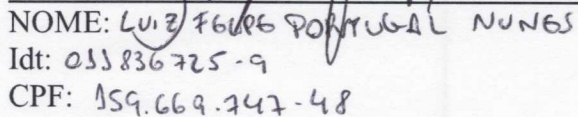 NOME: LUIZ FELIPE PORTUGAL NUNES
Idt: 011836725-9
CPF: 159.669.747-48